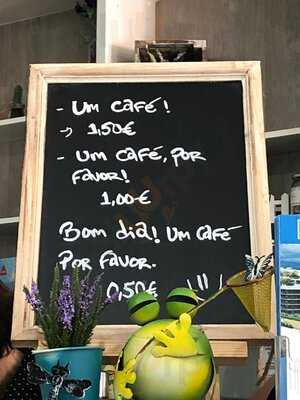 - Um café!
-> 1,50€
- Um café, por
favor!
1,00€
Bom dia! Um café
Por favor.
0,50€